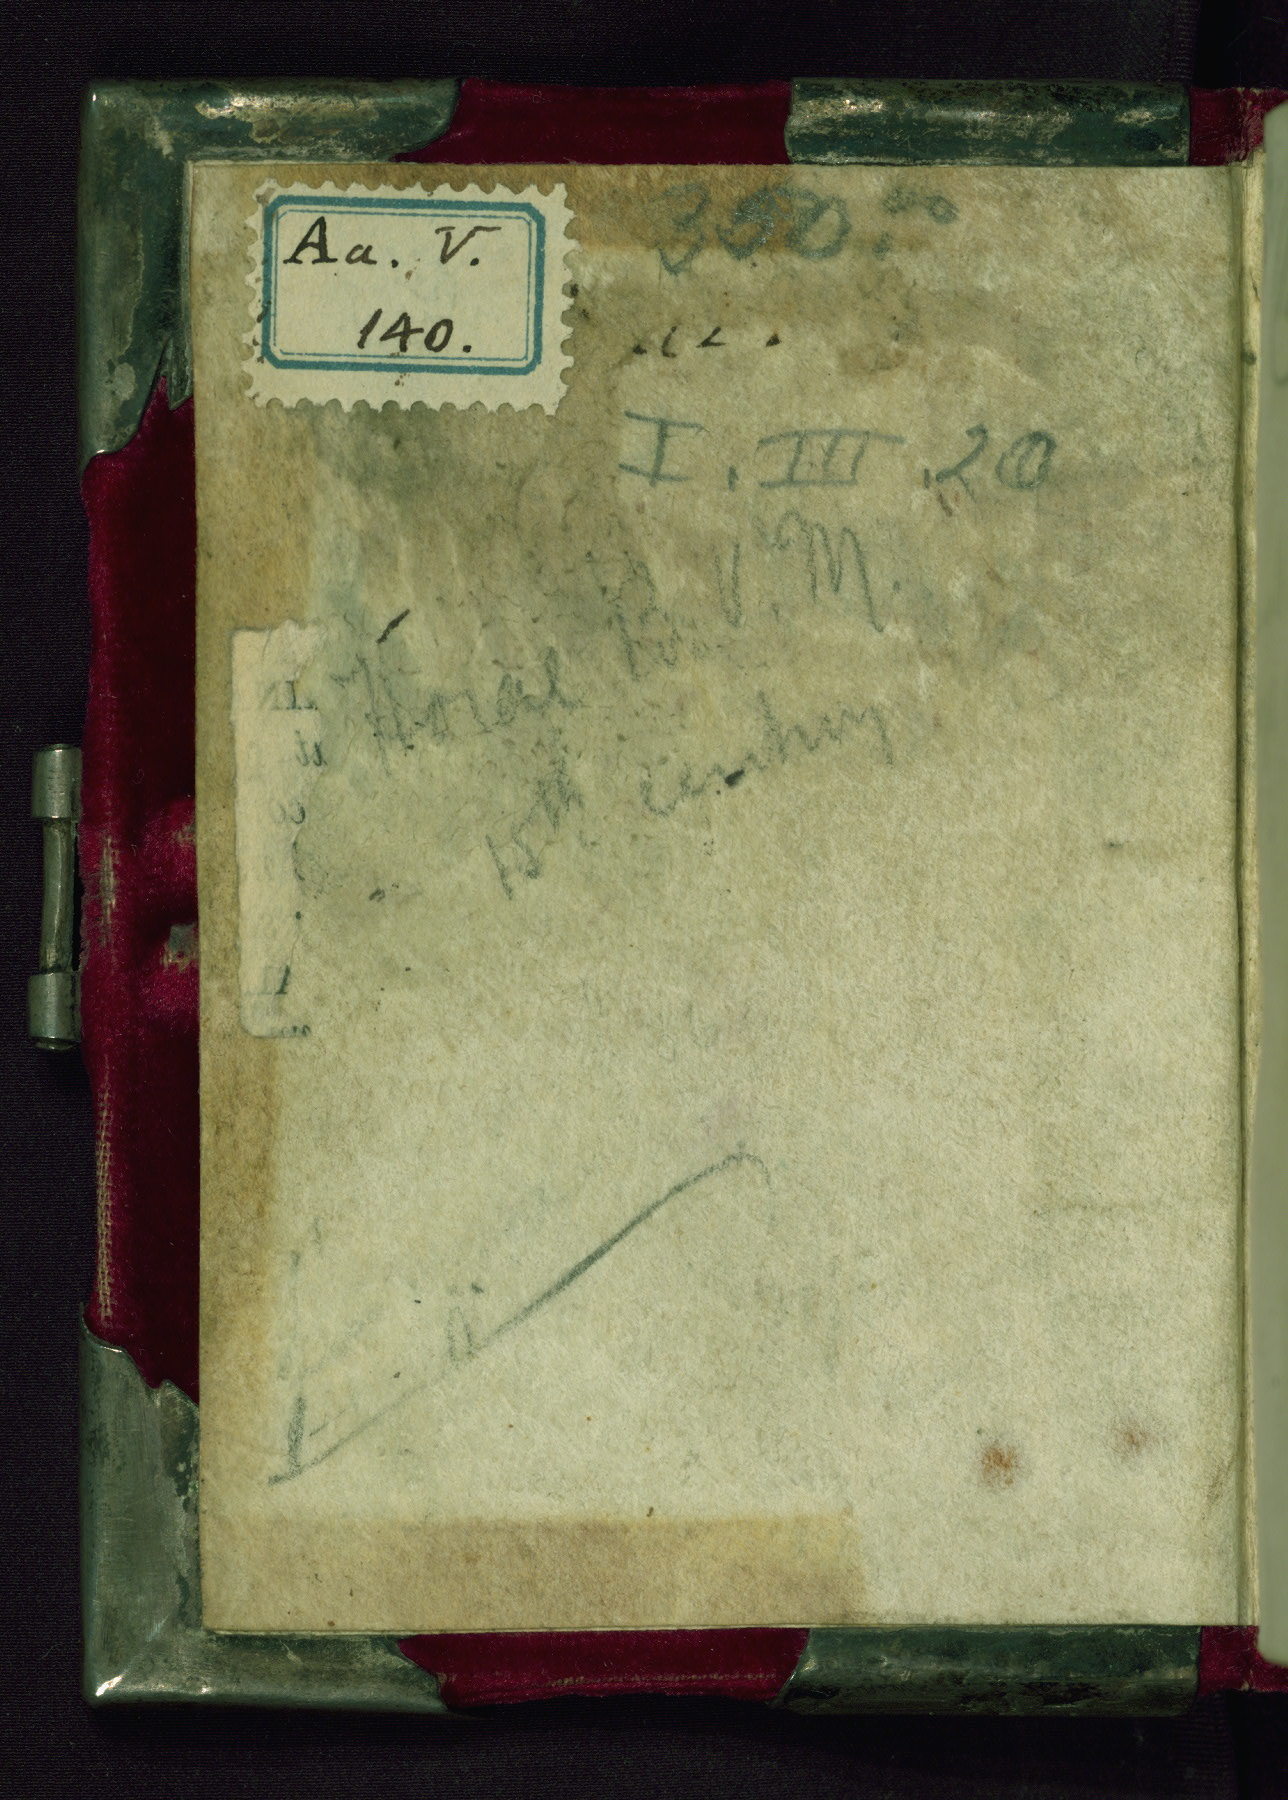 Aa. V.
140.
350.00
I. III. 20
Horae B. V. M.
15th century